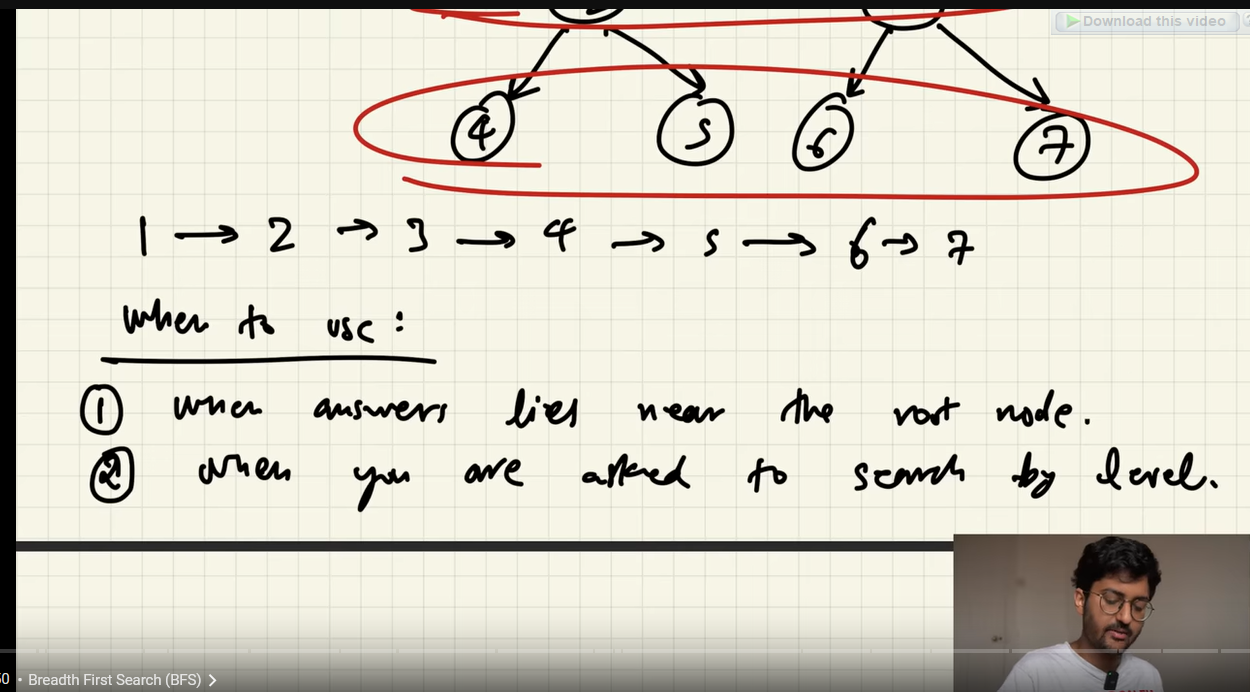 Download this video
4 5 6 7
1 → 2 → 3 → 4 → 5 → 6 → 7
When to use :
① when answers lies near the root node.
② when you are asked to search by level.
50 • Breadth First Search (BFS) >